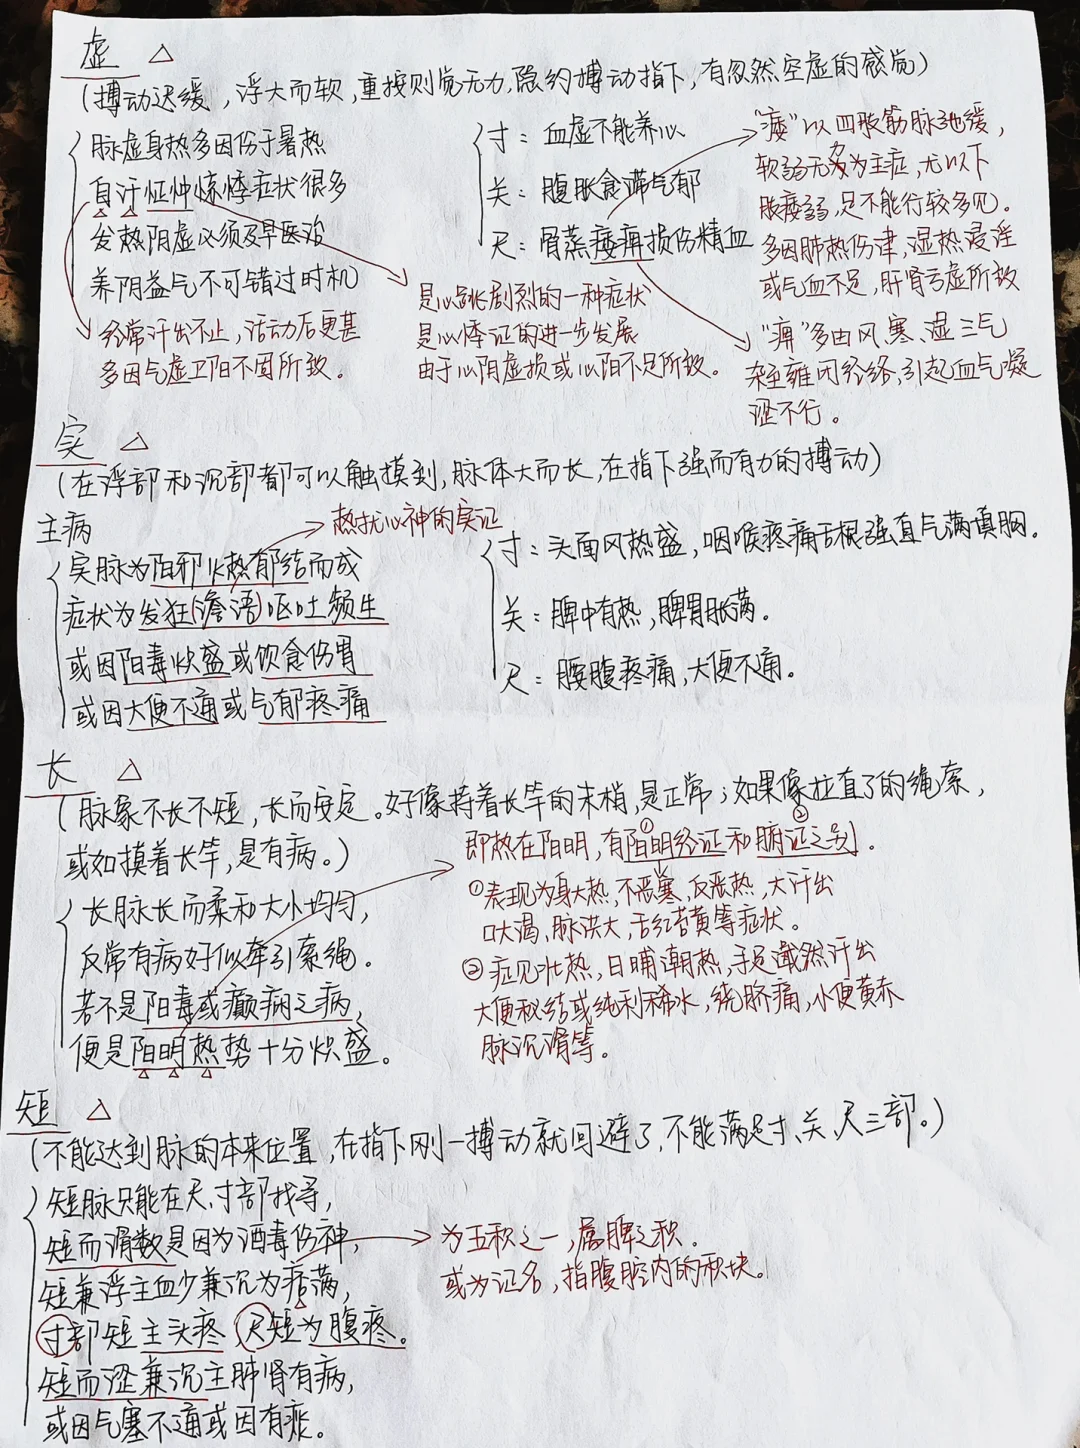 虚 △
(搏动迟缓,浮大而软,重按则觉无力,隐约搏动指下,有忽然空虚的感觉)
脉虚身热多因伤于暑热
自汗怔忡惊悸症状很多
发热阴虚必须及早医治
养阴益气不可错过时机
经常汗出不止,活动后更甚
多因气虚卫阳不固所致。
寸:血虚不能养心
关:腹胀食滞气郁
尺:骨蒸痿痹损伤精血
是心跳剧烈的一种症状
是心悸证的进一步发展
由于心阴虚损或心阳不足所致。
"痿"以四肢筋脉弛缓,
软弱无力为主症,尤以下
肢痿弱,足不能行较多见。
多因肺热伤津,湿热浸淫
或气血不足,肝肾亏虚所致
"痹"多由风、寒、湿三气
杂至雍闭经络,引起血气凝
涩不行。
实 △
(在浮部和沉部都可以触摸到,脉体大而长,在指下强而有力的搏动)
主病
热扰心神的实证
实脉为阳邪火热郁结而成
症状为发狂(谵语)呕吐频生
或因阳毒炽盛或饮食伤胃
或因大便不通或气郁疼痛
寸:头面风热盛,咽喉疼痛舌根强直气满填胸。
关:脾中有热,脾胃胀满。
尺:腰腹疼痛,大便不通。
长 △
(脉象不长不短,长而安定。好像持着长竿的末梢,是正常;如果像拉直了的绳索,
或如摸着长竿,是有病。)
长脉长而柔和大小均匀,
反常有病好似牵引索绳。
若不是阳毒或癫痫之病,
便是阳明热势十分炽盛。
即热在阳明,有①阳明经证和②腑证之别。
①表现为身大热,不恶寒,反恶热,大汗出
口大渴,脉洪大,舌红苔黄等症状。
②症见壮热,日晡潮热,手足濈然汗出
大便秘结或纯利稀水,绕脐痛,小便黄赤
脉沉滑等。
短 △
(不能达到脉的本来位置,在指下刚一搏动就回避了,不能满足寸、关、尺三部。)
短脉只能在尺寸部找寻,
短而滑数是因为酒毒伤神,
短兼浮主血少兼沉为痞满,
寸部短主头疼 尺短为腹疼。
短而涩兼沉主肺肾有病,
或因气塞不通或因有痰。
为五积之一,属脾之积.
或为证名,指腹腔内的积块。